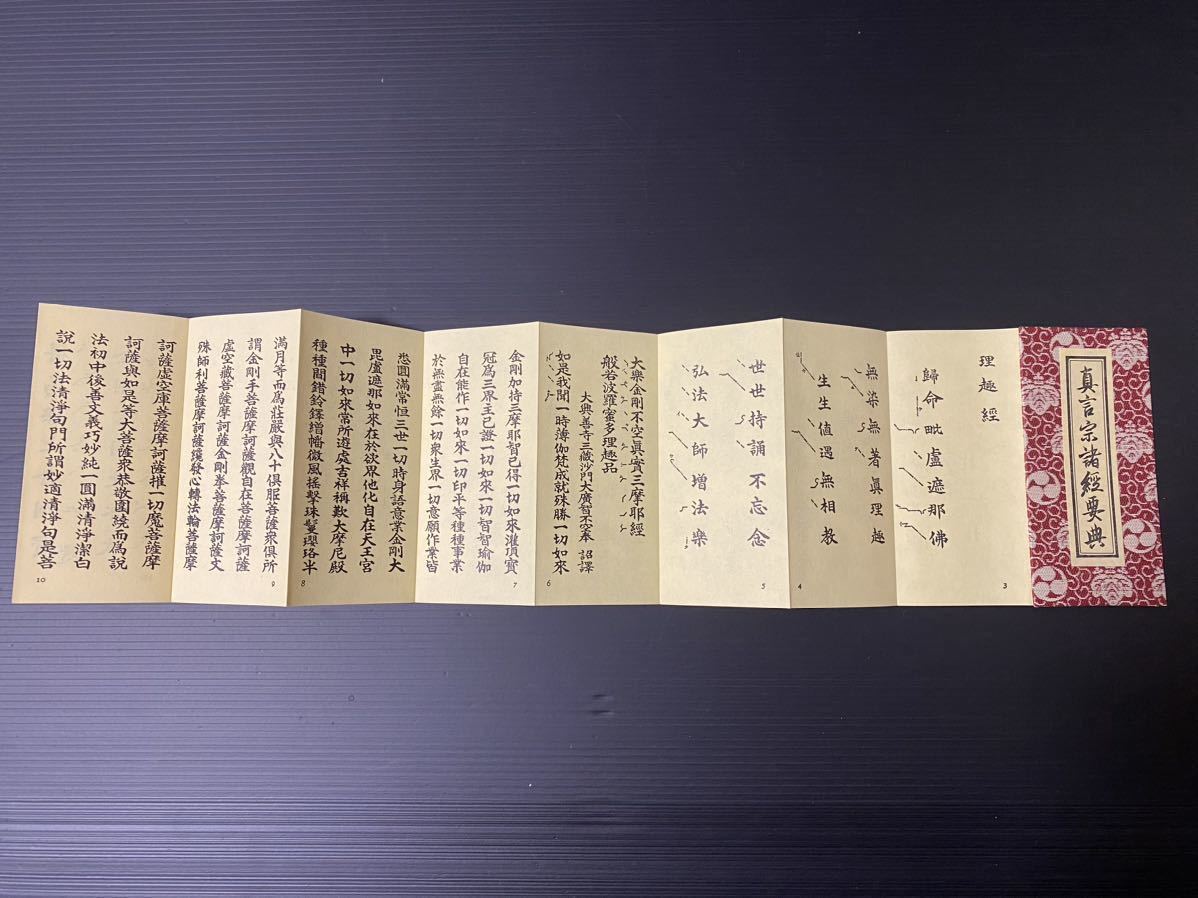 真言宗諸經要典
理趣經
歸命毗盧遮那佛
3
無染無著眞理趣
生生值遇無相教
4
世世持誦不忘念
弘法大師増法樂
5
大樂金剛不空眞實三摩耶經
般若波羅蜜多理趣品
大興善寺三藏沙門大廣智不空奉 詔譯
如是我聞一時薄伽梵成就殊勝一切如來
6
金剛加持三摩耶智已得一切如來灌頂寶
冠爲三界主已證一切如來一切智智瑜伽
自在能作一切如來一切印平等種種事業
於無盡無餘一切衆生界一切意願作業皆
7
悉圓滿常恒三世一切時身語意業金剛大
毘盧遮那如來在於欲界他化自在天王宮
中一切如來常所遊處吉祥稱歎大摩尼殿
種種間錯鈴鐸繒幡微風搖擊珠鬘瓔珞半
8
滿月等而爲莊嚴與八十俱胝菩薩衆俱所
謂金剛手菩薩摩訶薩觀自在菩薩摩訶薩
虛空藏菩薩摩訶薩金剛拳菩薩摩訶薩文
殊師利菩薩摩訶薩纔發心轉法輪菩薩摩
9
訶薩虛空庫菩薩摩訶薩摧一切魔菩薩摩
訶薩與如是等大菩薩衆恭敬圍繞而爲說
法初中後善文義巧妙純一圓滿清淨潔白
說一切法清淨句門所謂妙適清淨句是菩
10